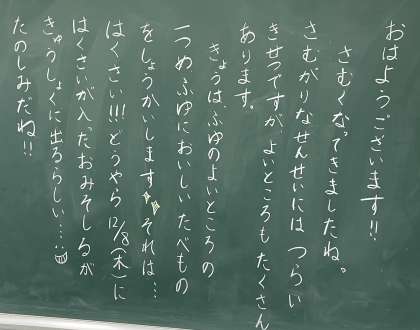 おはようございます!!
さむくなってきましたね。
さむがりなせんせいには つらい
きせつですが、よいところも たくさん
あります。
きょうは、ふゆのよいところの
一つめふゆにおいしい たべもの
をしょうかいします それは…
はくさい!!! どうやら 12/8(木)に
はくさいが入ったおみそしるが
きゅうしょくに出るらしい…
たのしみだね!!